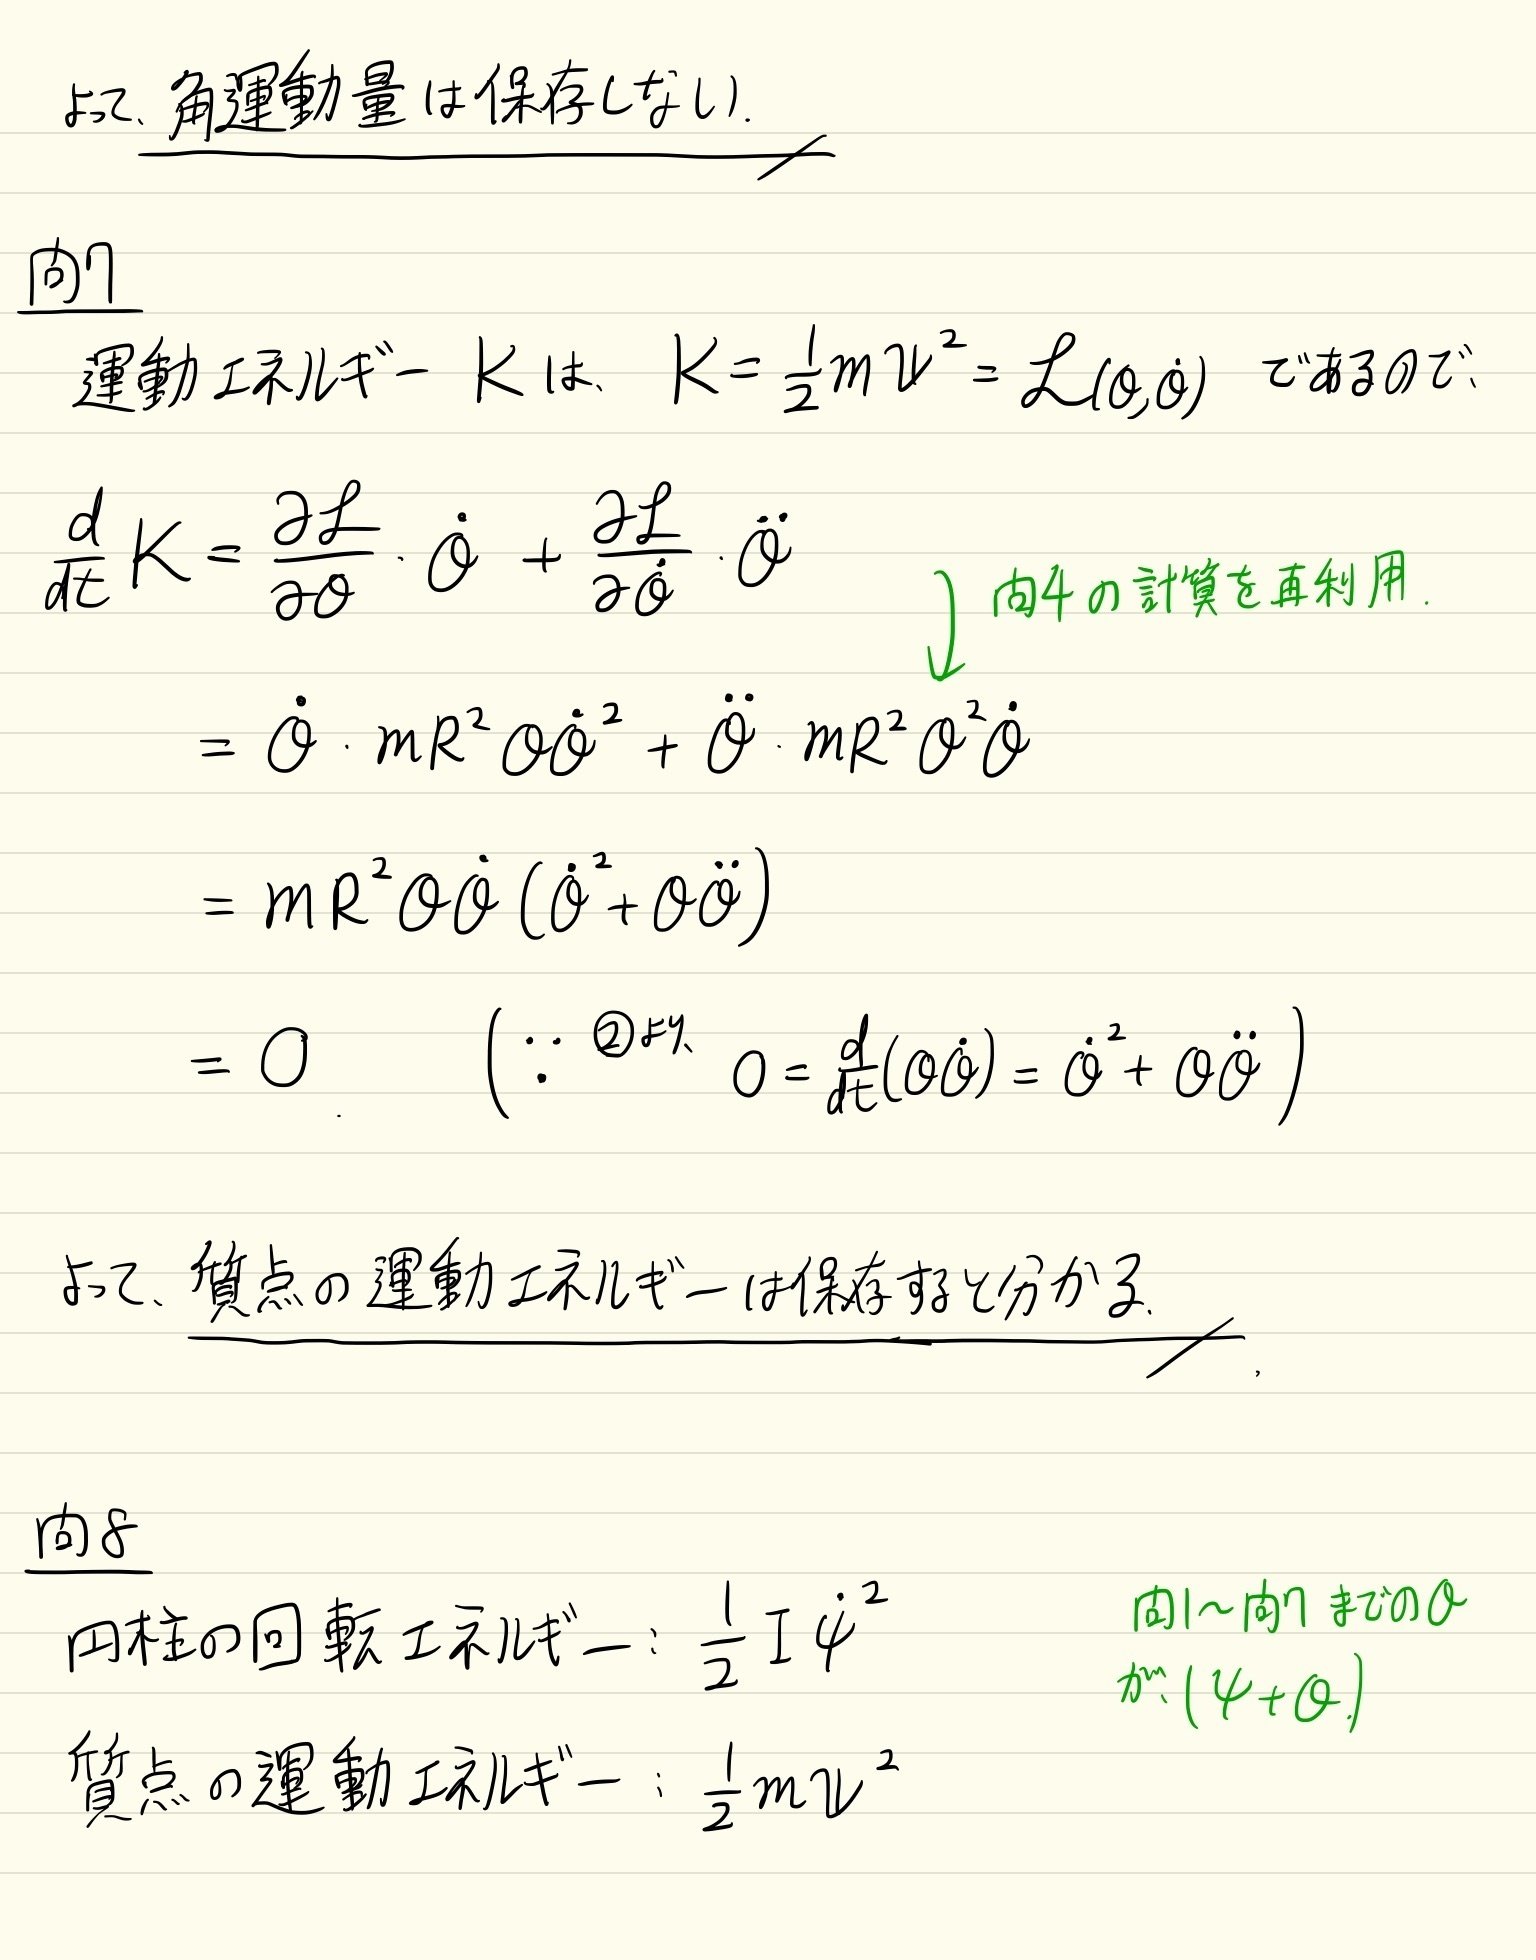 よって、角運動量は保存しない.
問7
運動エネルギー K は、 K = 1/2 m𝕍² = ℒ(θ,θ̇) であるので、
d/dt K = ∂ℒ/∂θ · θ̇ + ∂ℒ/∂θ̇ · θ̈
問4の計算を再利用.
= θ̇ · mR²θθ̇² + θ̈ · mR²θ²θ̇
= mR²θθ̇ (θ̇² + θθ̈)
= 0. (∵ ②より、 0 = d/dt(θθ̇) = θ̇² + θθ̈)
よって、質点の運動エネルギーは保存すると分かる.
問8
円柱の回転エネルギー : 1/2 I ψ̇²
問1〜問7 までのθ
が、(ψ+θ)
質点の運動エネルギー : 1/2 m𝕍²